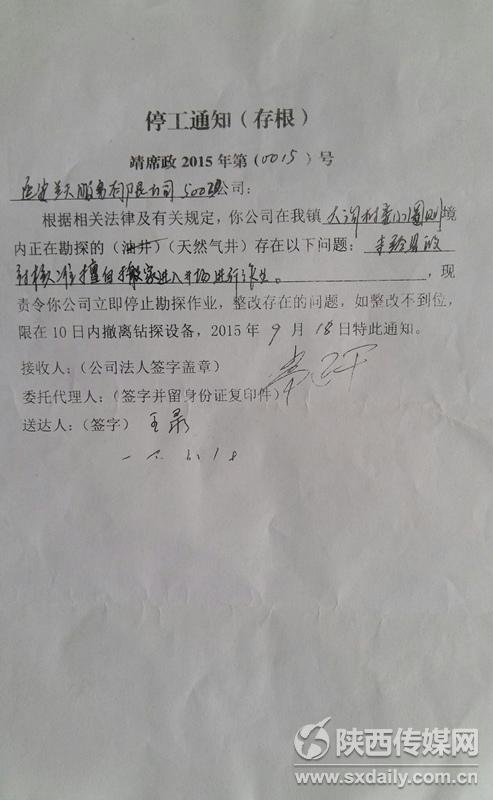 停工通知(存根)
靖席政 2015 年第(0015)号
延安 服务有限公司 500 公司:
根据相关法律及有关规定,你公司在我镇 大沟村 境
内正在勘探的(油井)(天然气井)存在以下问题:未经县政
府核准擅自搬家进入井场进行作业。,现
责令你公司立即停止勘探作业,整改存在的问题,如整改不到位,
限在 10 日内撤离钻探设备,2015 年 9 月 18 日特此通知。
接收人:(公司法人签字盖章)
委托代理人:(签字并留身份证复印件)
送达人:(签字) 王录
陕西传媒网
www.sxdaily.com.cn